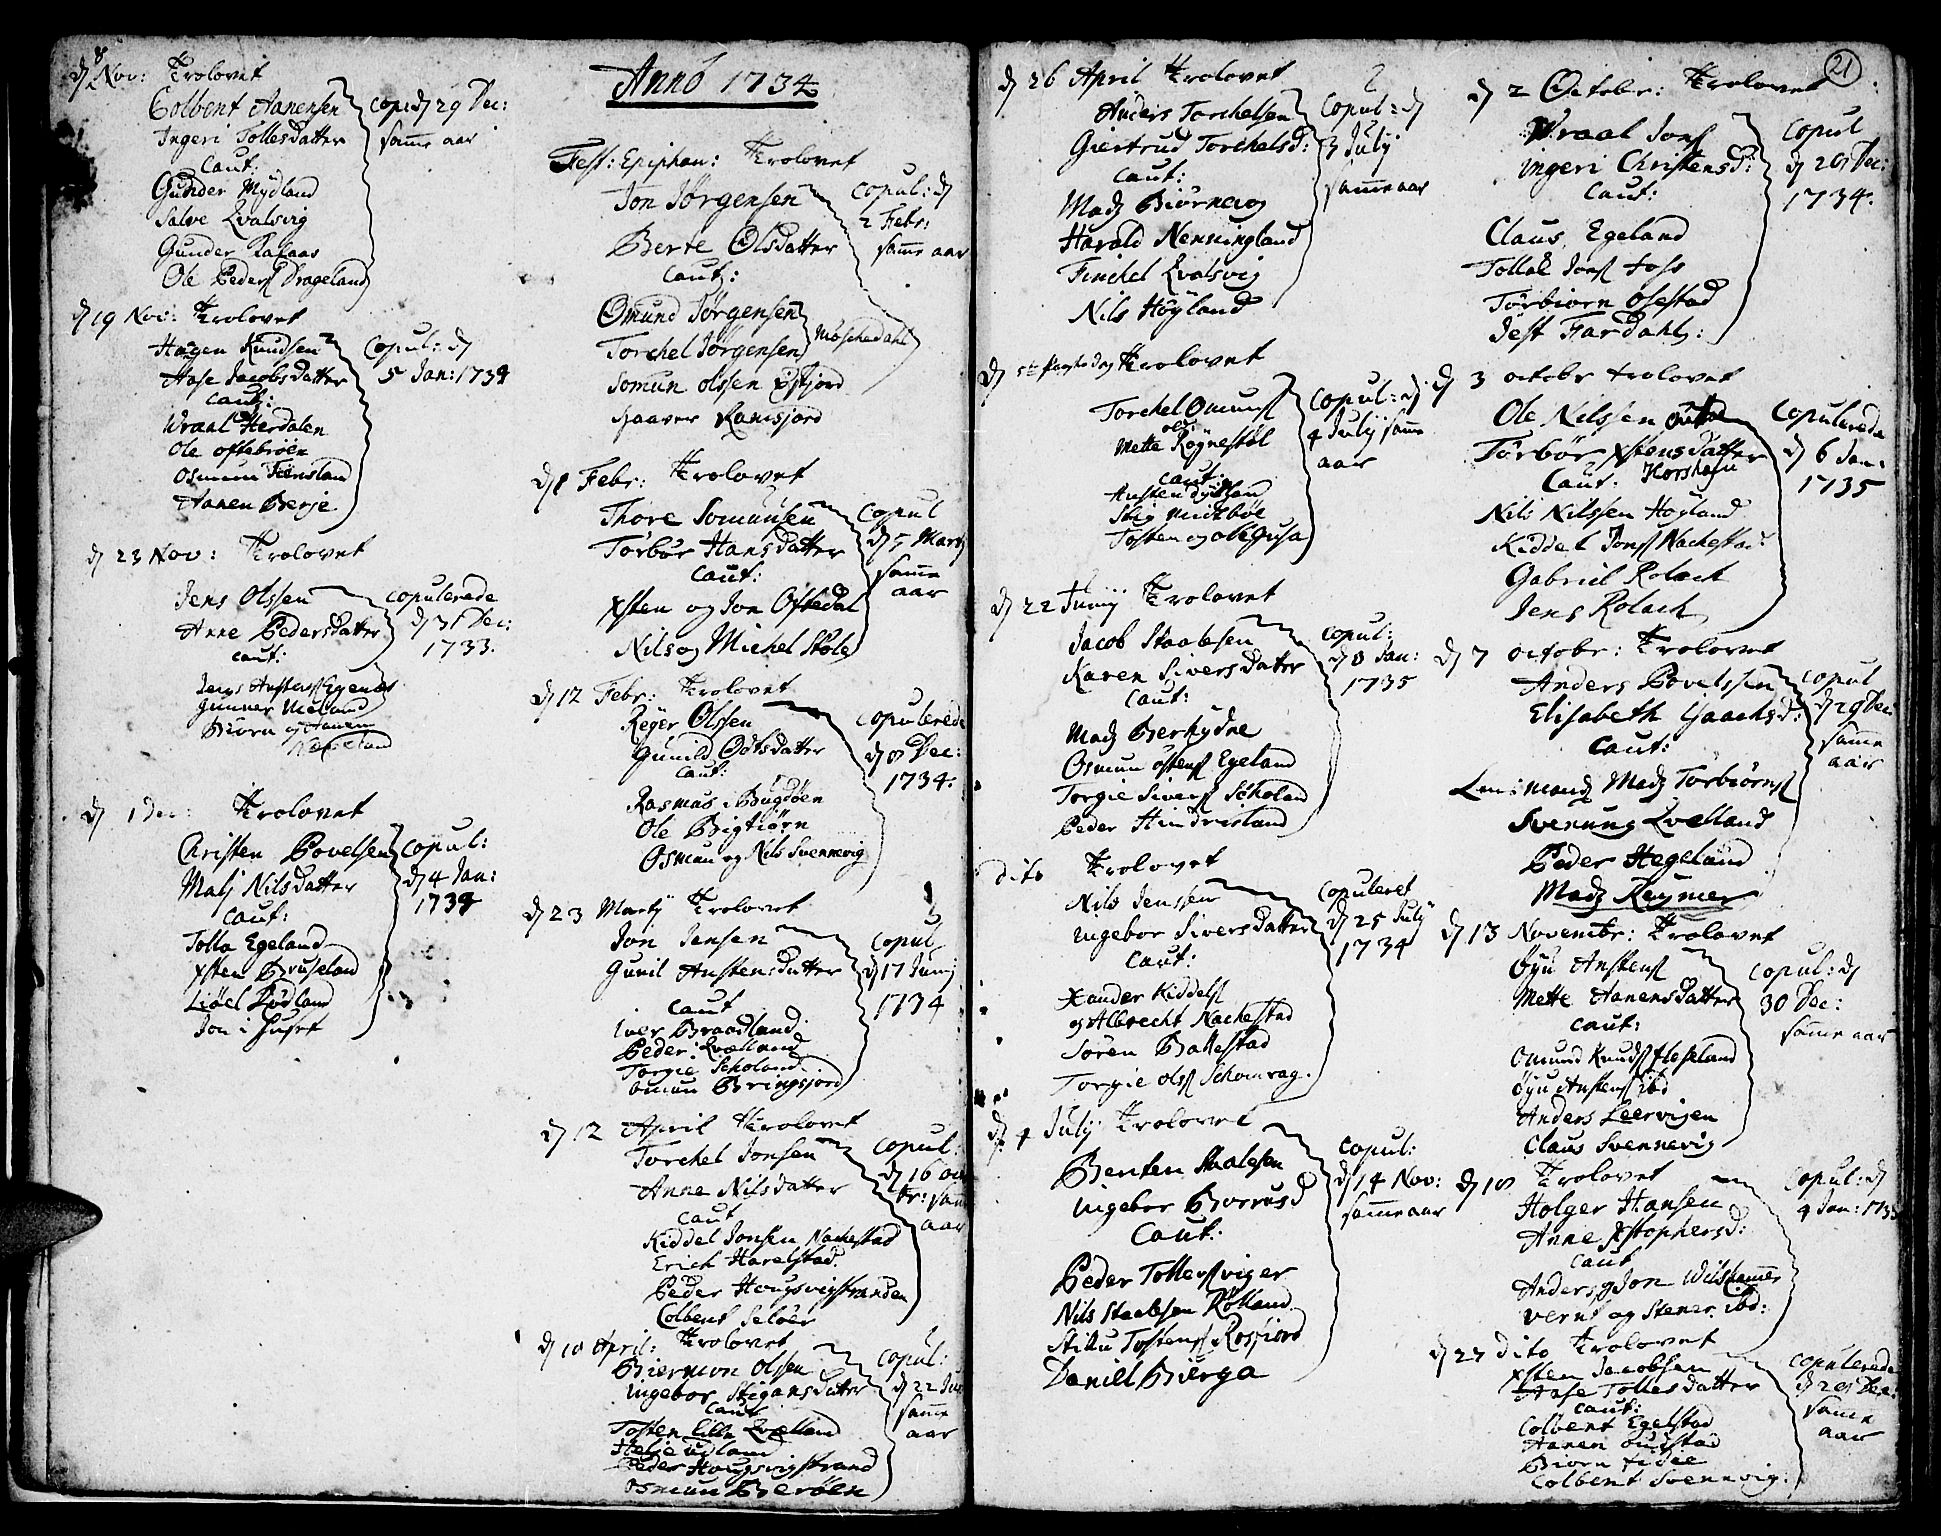 d 8 Nov: Trolovet
Colbent Aanensen
Ingeri Tollesdatter
Caut:
Gunder Mydland
Salve Qvalsvig
Gunder
Ole Peders Drageland
cop: d 29 Dec:
samme aar
d 19 Nov: Trolovet
Hagen Knudsen
Aase Jacobsdatter
Caut:
Wraal Herdalen
Ole oftebröen
Osmun
Aanen Berje
Copul: d
5 Jan: 1734
d 23 Nov: Trolovet
Jens Olssen
Anne Pedersdatter
caut:
Jens Egenes
Gunner
Biörn og Aanen
copulerede
d 31 Dec:
1733.
d 1 Dec: Trolovet
Christen Povelsen
Malj Nilsdatter
Caut:
Tolla Egeland
Xsten Bruseland
Liöel Rödland
Jon i Huset
copul:
d 4 Jan:
1734
Anno 1734
Fest: Epiphan: Trolovet
Jon Jörgensen
Berte Olsdatter
Caut:
Omund Jörgensen
Torchel Jörgensen
Moschedahl
Somun olssen
Haaver Ramsfjord
copul: d
2 Febr:
samme aar
d 1 Febr: Trolovet
Thore Somunsen
Torbor Hansdatter
Caut:
Xsten og Jon Oftedal
Nils og Michel Skole
Copul
d 5 Martj
samme
aar
d 12 Febr: Trolovet
Reyer Olssen
Gunild Odtsdatter
Caut:
Rasmus i Bugdöen
Ole Bigtiörn
Osmun og Nils Svennevig
copulerede
d 8 Dec:
1734.
d 23 Martij Trolovet
Jon Jensen
Gunil Austensdatter
Caut
Iver Braadland
Peder Qvelland
Torgie Scholand
omun Bringsjord
Copul
d 17 Junij
1734
d 12 April Trolovet
Torchel Jonsen
Anne Nilsdatter
Caut
Kiddel Jonsen Nachestad
Erich Harelstad
Peder Hougsvigstranden
Colbent Selöer
copul:
d 16 oc
br: sam
aar
d 18 April: Trolovet
Biermon Olsen
Ingebor Stigansdatter
Caut
Tosten lille Qvelland
Helje udland
Peder Hougsvigstrand
Osmun Beröen
copul:
d 22 Jun
samme
aar
21
d 26 April Trolovet
Anders Torchelsen
Giertrud Torchelsd:
caut:
Madz Biörnevog
Harald Nenningland
Finckel Qvalsvig
Nils Höyland
Copul: d
3 Julij
samme aar
Trolovet
Torchel Omuns
Mette Röynestöl
caut
Austen
Stig Mittböe
Tosten og ole Gusa
Copul: d
4 Julij samme
aar
d 22 Junij Trolovet
Jacob Staalesen
Karen Siversdatter
Caut:
Madz Berhydne
Osmun östens Egeland
Torgie Sivers Scholand
Peder Hindresland
copul:
d 8 Jan:
1735
dito Trolovet
Nils Jenssen
Ingebor Siversdatter
caut:
Xander Kiddels
og Albrecht Nachestad
Sören Ballestad
Torgie ols Schomrag.
Copuleret
d 25 Julij
1734
d 4 Julij Trolovet
Benten Staalesen
Ingebor Borrusd
Caut:
Peder Tollevsviger
Nils Staalesen Rölland
Stillu Tostens Rosfiord
Daniel Bierga
copul:
d 14 Nov:
samme aar
d 2 Octobr: Trolovet
Wraal Jons
Ingeri Christensd:
Caut:
Claus Egeland
Tollak Jons foss
Törbiorn Osestad
Jest Fardahl:
copul
d 28 Dec:
1734.
d 3 octobr trolovet
Ole Nilssen
Torbor Xstensdatter
Caut: Horshafn
Nils Nilssen Höyland
Kiddel Jons Nachestad
Gabriel Rolach
Jens Rolach
Copulerede
d 6 Jan:
1735
d 7 octobr: Trolovet
Anders Povelssen
Elisabeth Isaachsd:
Caut:
Lensmand Madz Torbiörns
Svenung Qvelland
Peder Hegeland
Madz Reymer
copul
d 29 Dec:
samme
aar
d 13 Novembr: Trolovet
öyu Austens
Mette Aanensdatter
caut:
Omund Knuds fleseland
öyu Austens ibd
Anders Leervigen
Claus Svennevig
copul: d
30 Dec:
samme aar
d 18 Trolovet
Holger Hansen
Anne Xstophersd:
Caut
Anders og Jon
Vernt og Stener ibd:
Copul: d
4 Jan: 1735
d 27 dito Trolovet
Xsten Jacobsen
Aase Tollesdatter
Caut:
Colbent Egelstad
Aanen
Biorn
Colbent Svennvig:
copulerede
d 28 Dec:
samme
aar